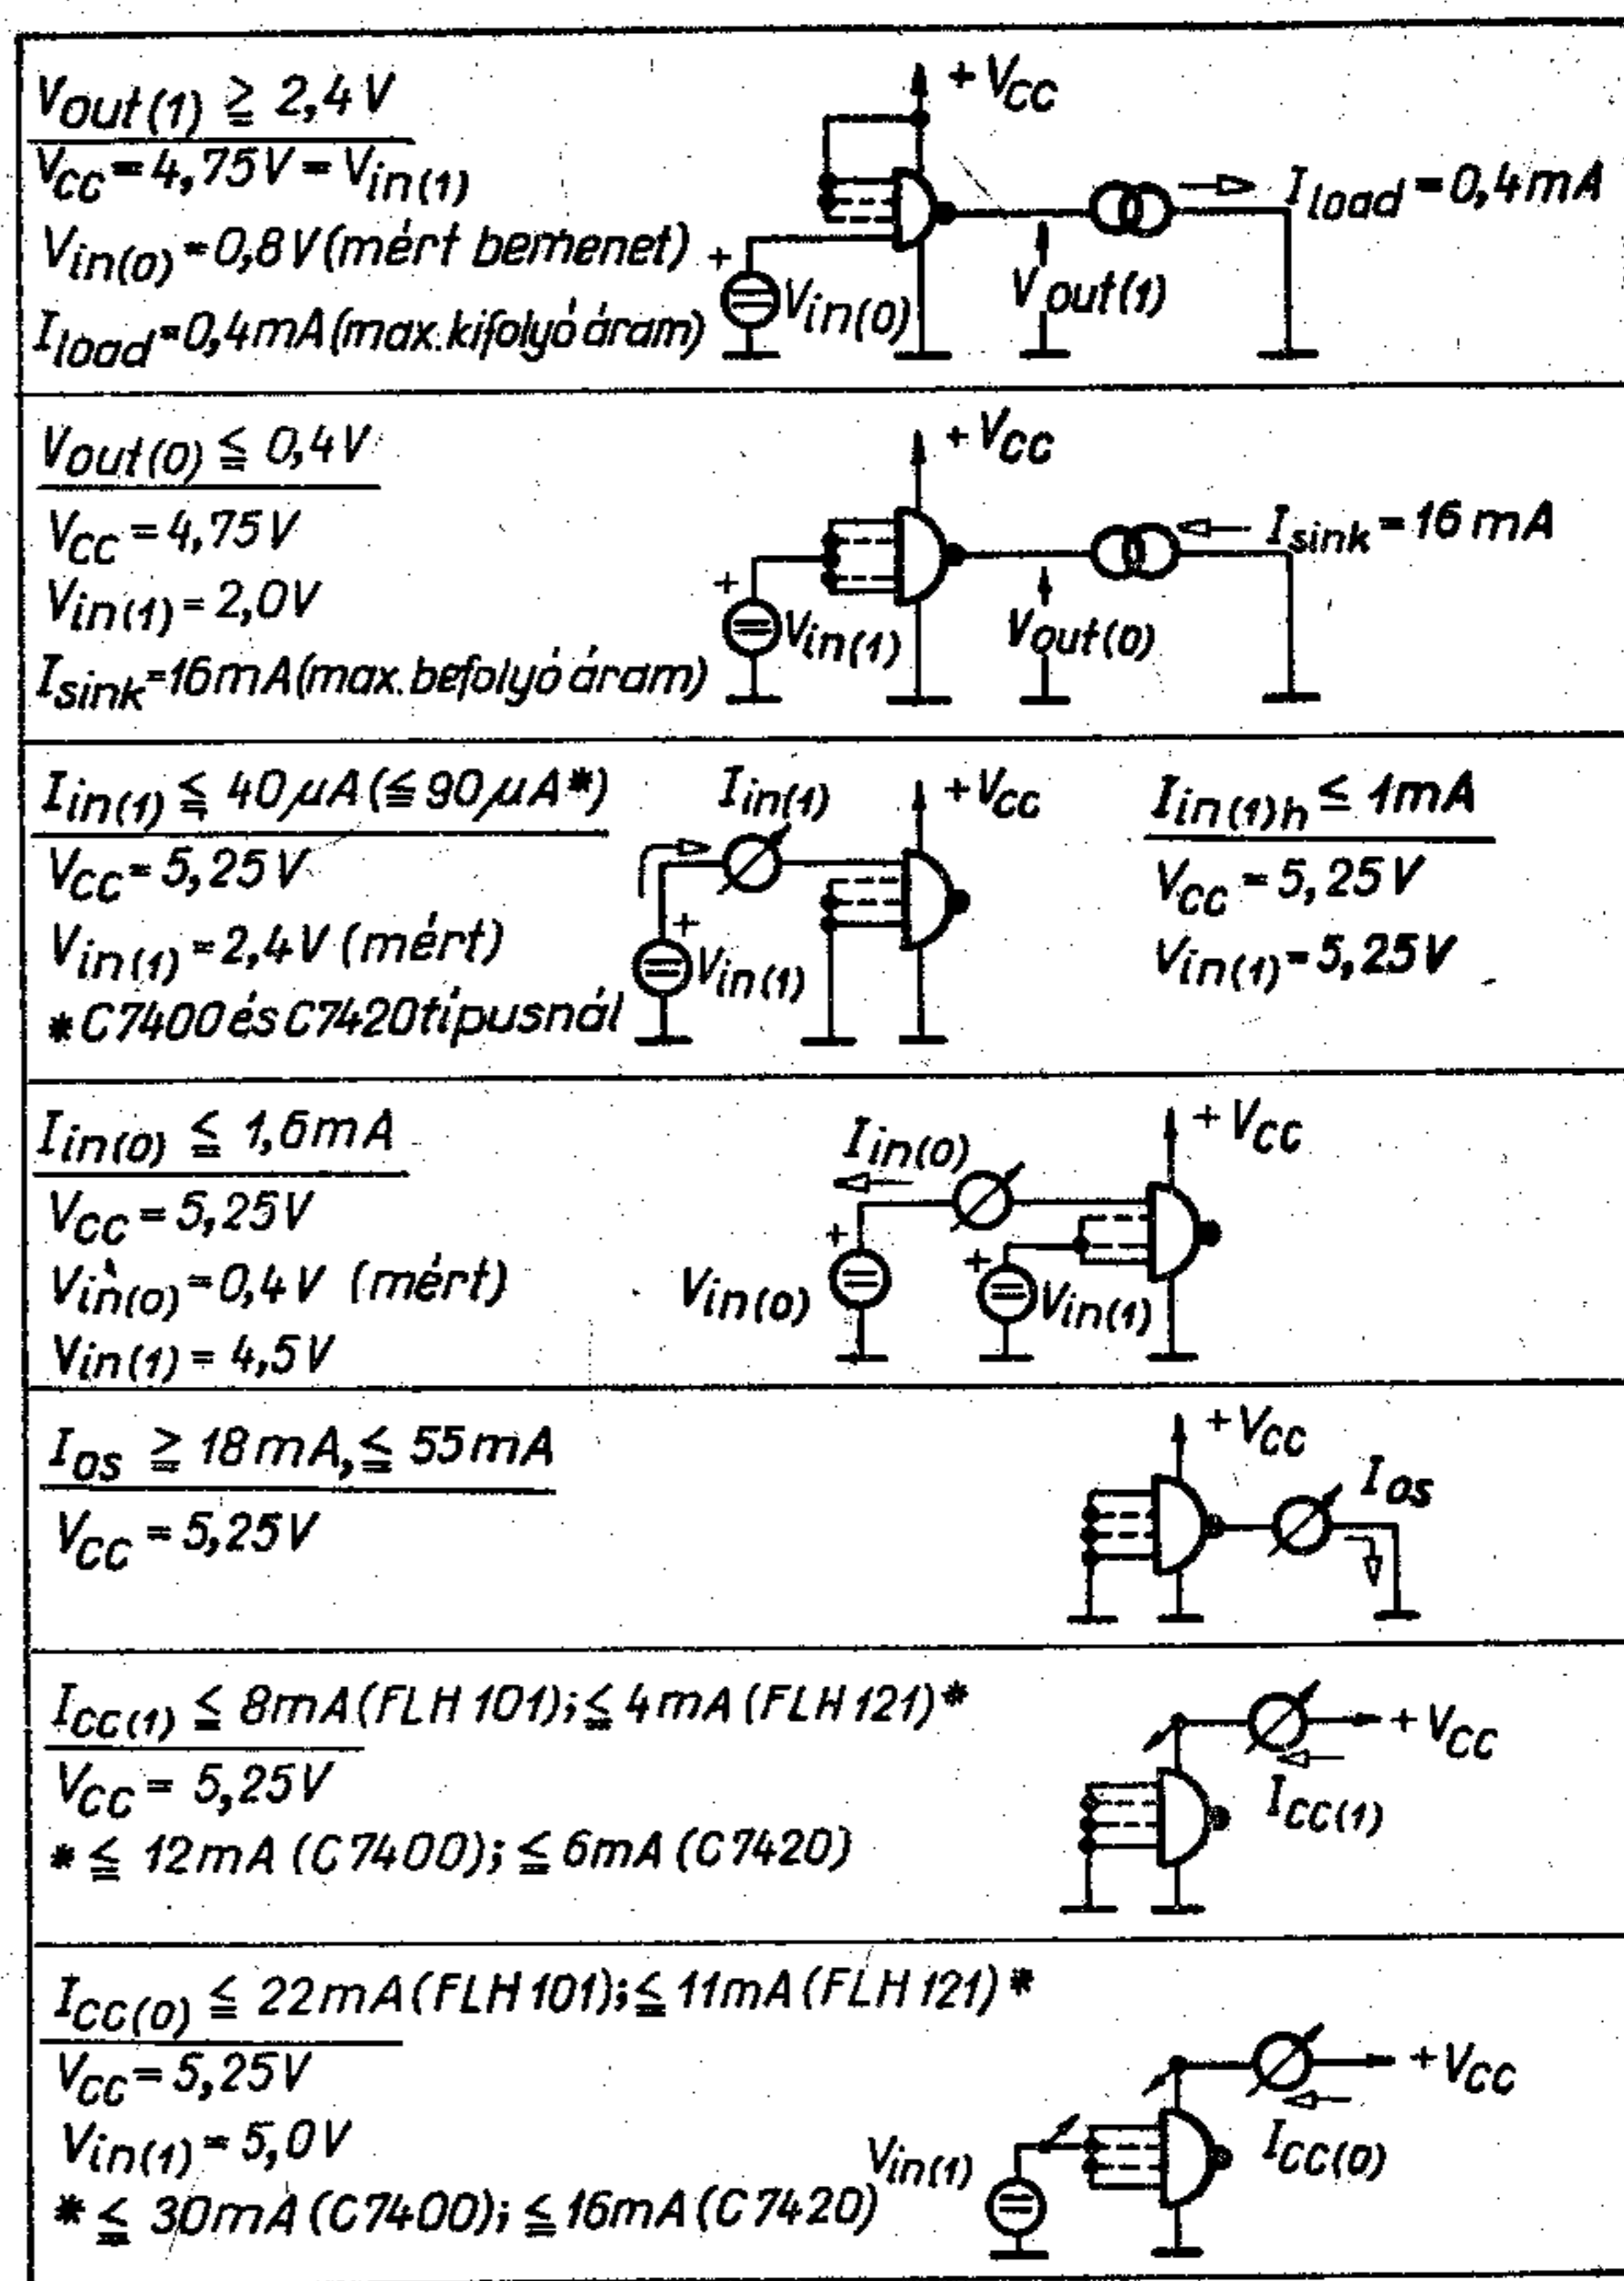 Vout(1) ≧ 2,4V
VCC = 4,75V = Vin(1)
Vin(0) = 0,8V (mért bemenet)
Iload = 0,4mA (max. kifolyó áram)
+VCC
Iload = 0,4mA
+
Vin(0)
Vout(1)
Vout(0) ≦ 0,4V
VCC = 4,75V
Vin(1) = 2,0V
Isink = 16mA (max. befolyó áram)
+VCC
Isink = 16mA
+
Vin(1)
Vout(0)
Iin(1) ≦ 40µA (≦ 90µA*)
VCC = 5,25V
Vin(1) = 2,4V (mért)
* C7400 és C7420 típusnál
Iin(1)
+VCC
+
Vin(1)
Iin(1)h ≤ 1mA
VCC = 5,25V
Vin(1) = 5,25V
Iin(0) ≦ 1,6mA
VCC = 5,25V
Vin(0) = 0,4V (mért)
Vin(1) = 4,5V
Iin(0)
+VCC
+
Vin(0)
+
Vin(1)
IOS ≧ 18mA, ≦ 55mA
VCC = 5,25V
+VCC
IOS
ICC(1) ≦ 8mA (FLH 101); ≦ 4mA (FLH 121)*
VCC = 5,25V
* ≦ 12mA (C7400); ≦ 6mA (C7420)
+VCC
ICC(1)
ICC(0) ≦ 22mA (FLH 101); ≦ 11mA (FLH 121)*
VCC = 5,25V
Vin(1) = 5,0V
* ≦ 30mA (C7400); ≦ 16mA (C7420)
+VCC
Vin(1)
ICC(0)